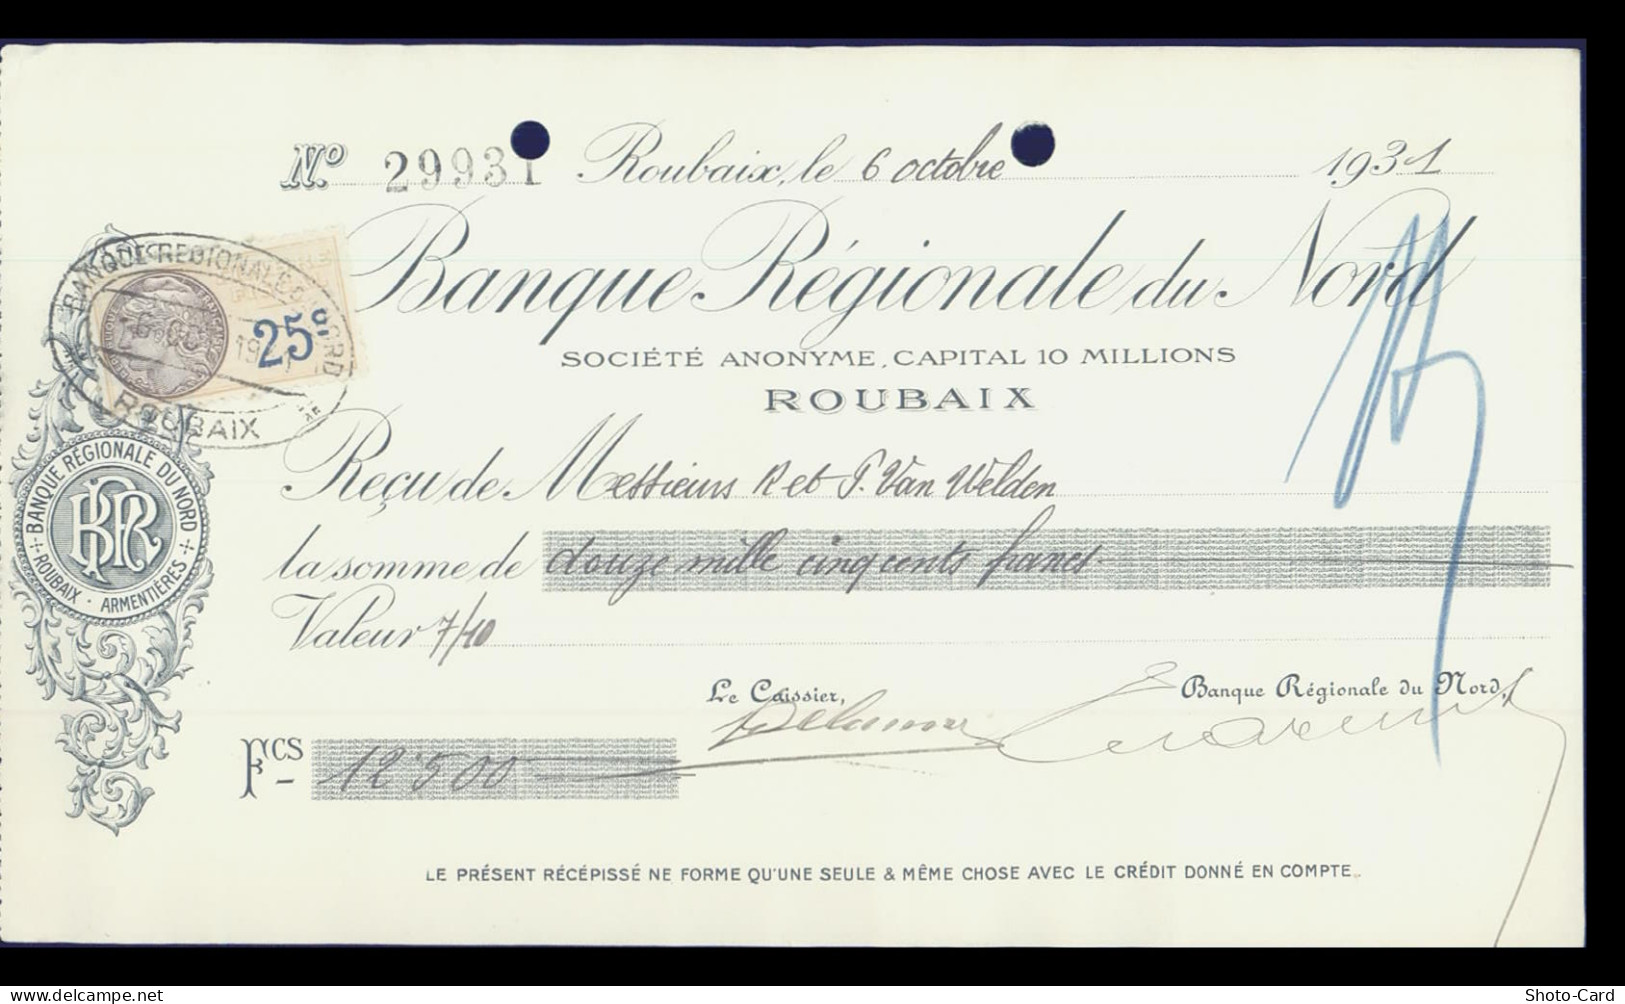 Nº 29931 Roubaix, le 6 octobre 1931
Banque Régionale du Nord
SOCIÉTÉ ANONYME, CAPITAL 10 MILLIONS
ROUBAIX
BANQUE REGIONALE DU NORD
25c
ROUBAIX
BANQUE RÉGIONALE DU NORD
BRN
ROUBAIX · ARMENTIÈRES
Reçu de Messieurs R et P. Van Welden
la somme de douze mille cinq cents francs
Valeur 7/10
Le Caissier, Banque Régionale du Nord,
Fcs 12500
LE PRÉSENT RÉCÉPISSÉ NE FORME QU'UNE SEULE & MÊME CHOSE AVEC LE CRÉDIT DONNÉ EN COMPTE.
Shoto-Card